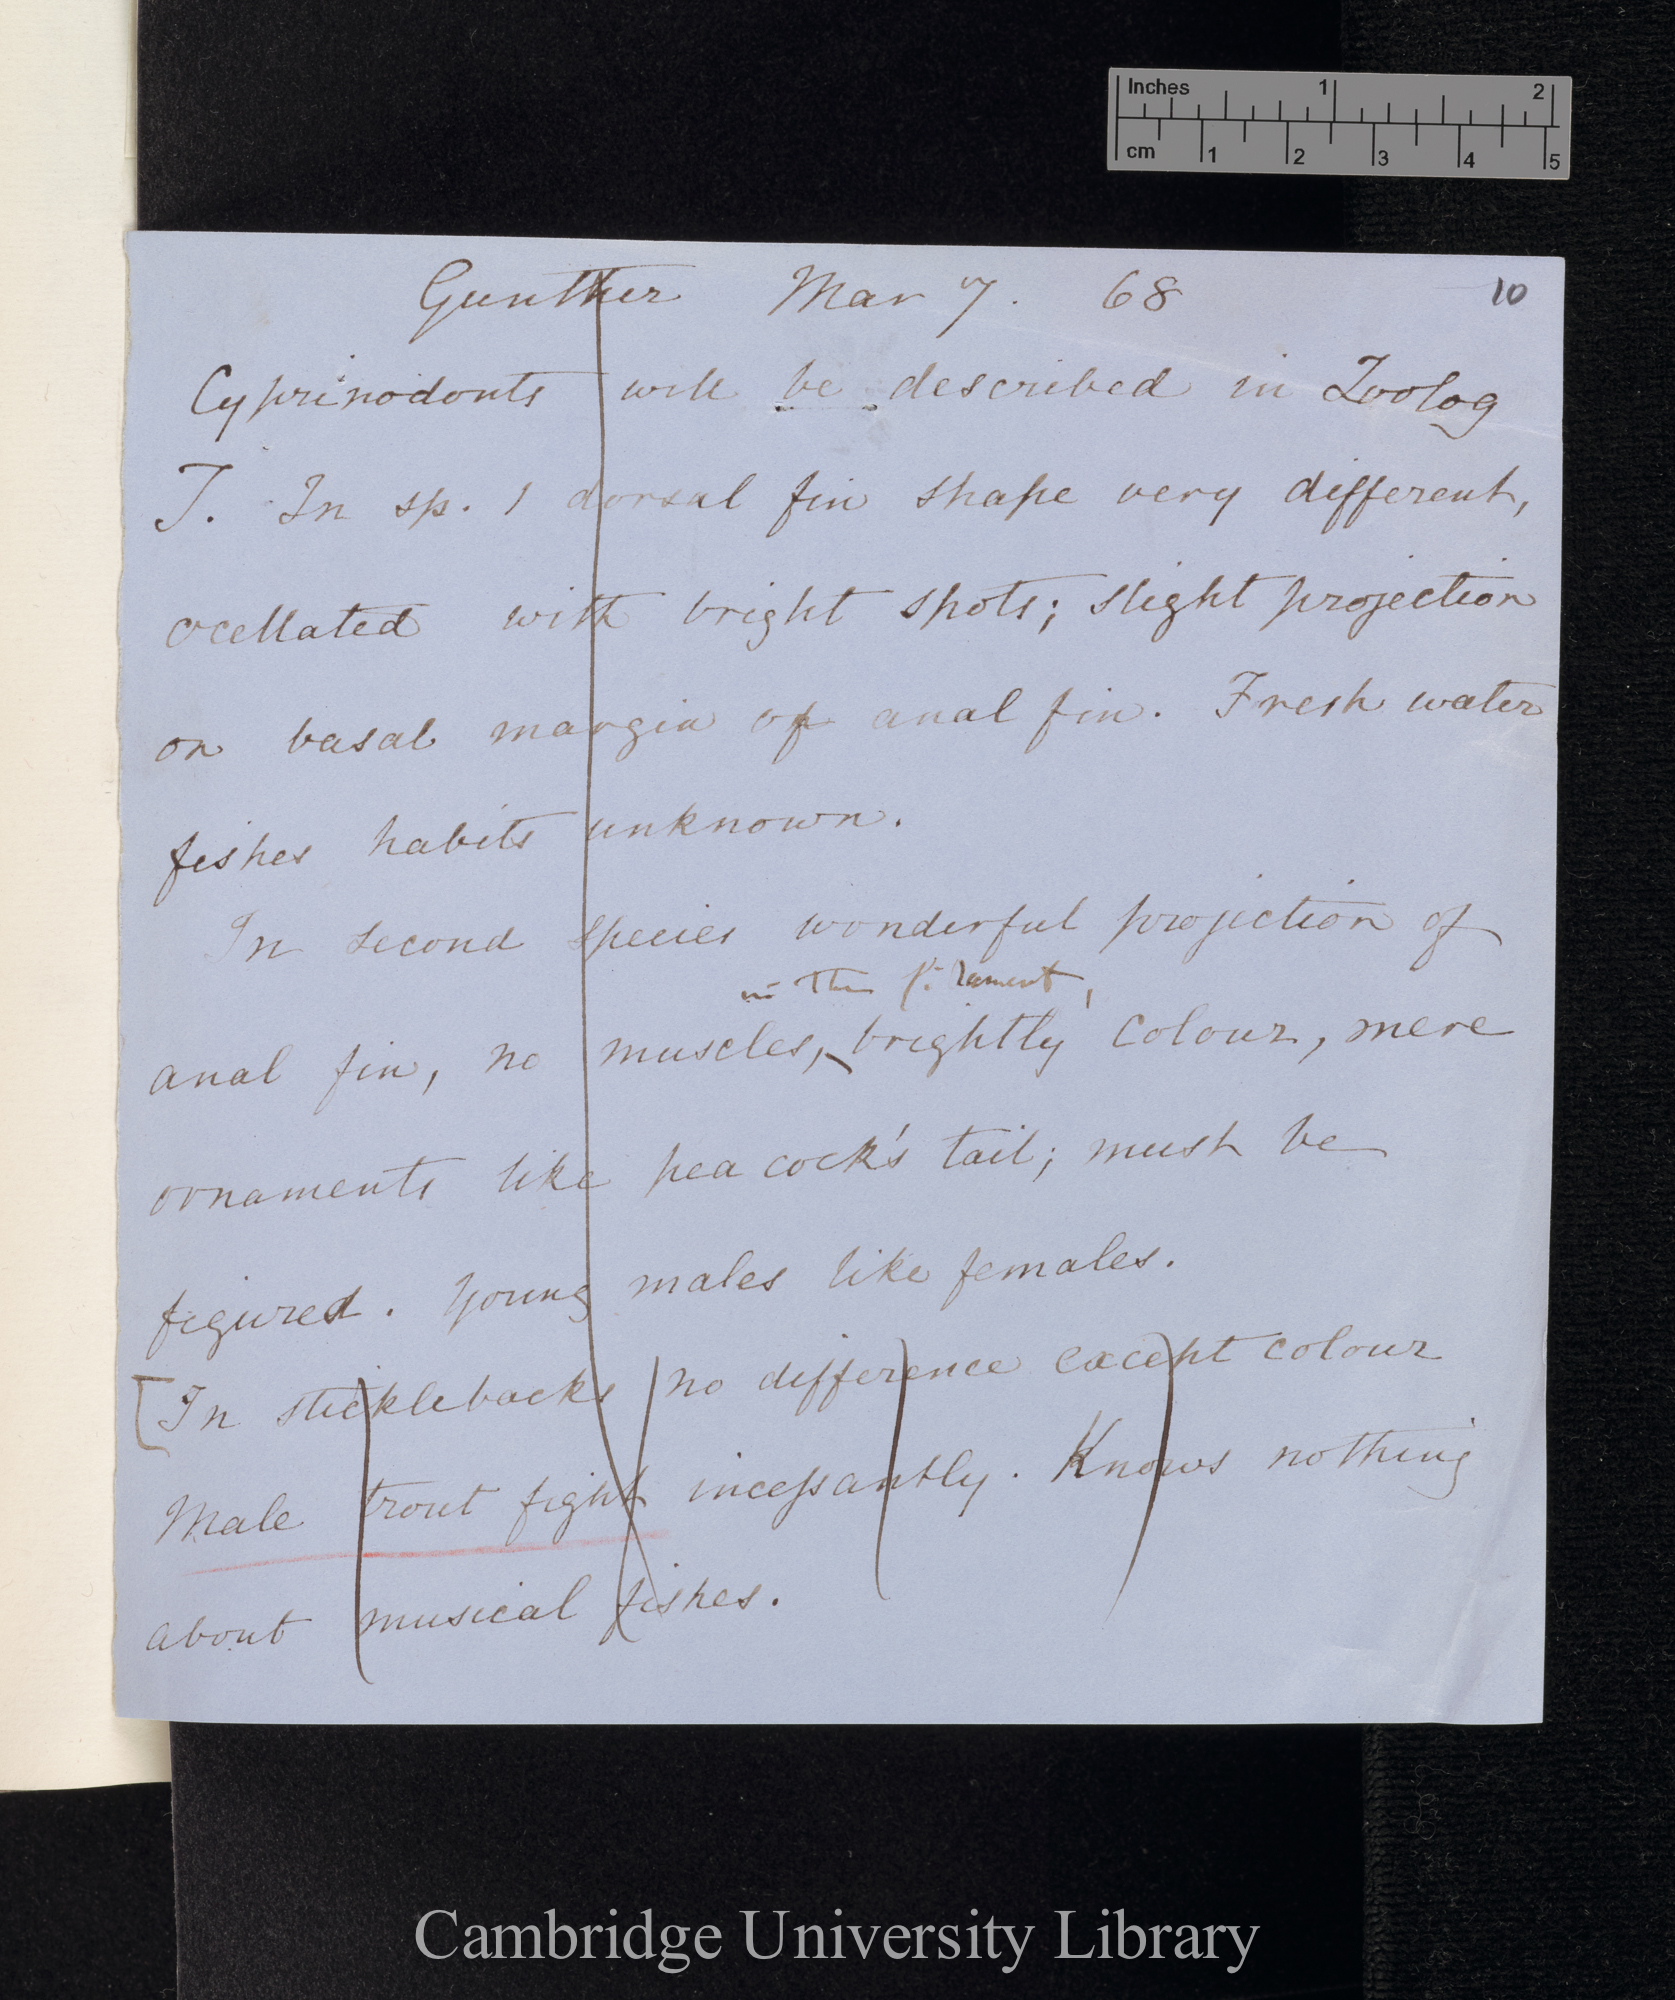 Inches 1 2
cm 1 2 3 4 5
Gunther Mar 7. 68
10
Cyprinodonts will be described in Zoolog
T. In sp. 1 dorsal fin shape very different,
ocellated with bright spots; slight projection
on basal margin of anal fin. Fresh water
fishes habits unknown.
In second species wonderful projection of
in the filament,
anal fin, no muscles, brightly colour, mere
ornaments like peacock's tail; must be
figured. Young males like females.
[In sticklebacks no difference except colour
Male trout fight incessantly. Knows nothing
about musical fishes.
Cambridge University Library